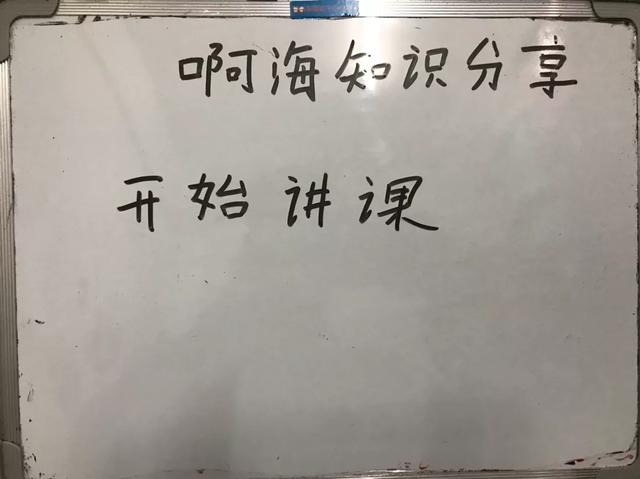 啊海知识分享
开始讲课